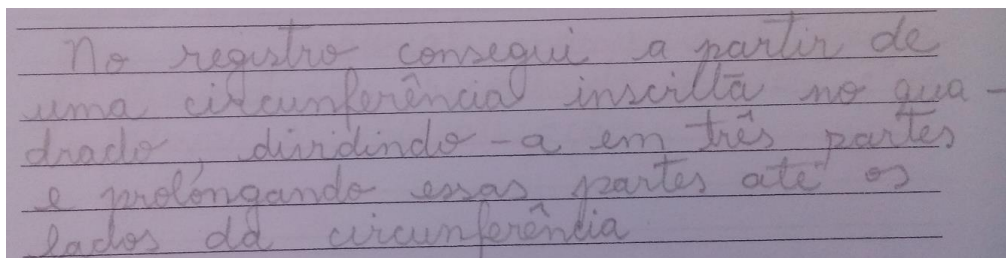 No registro consegui a partir de
uma circunferência inscrita no qua-
drado, dividindo-a em três partes
e prolongando essas partes até os
lados da circunferência